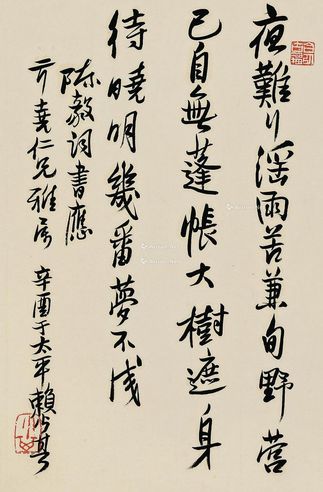 夜難行淫雨苦兼旬野營
已自無蓬帳大樹遮身
待曉明幾番夢不成
陳毅詞書應
堯仁兄雅属
辛酉于太平賴少其